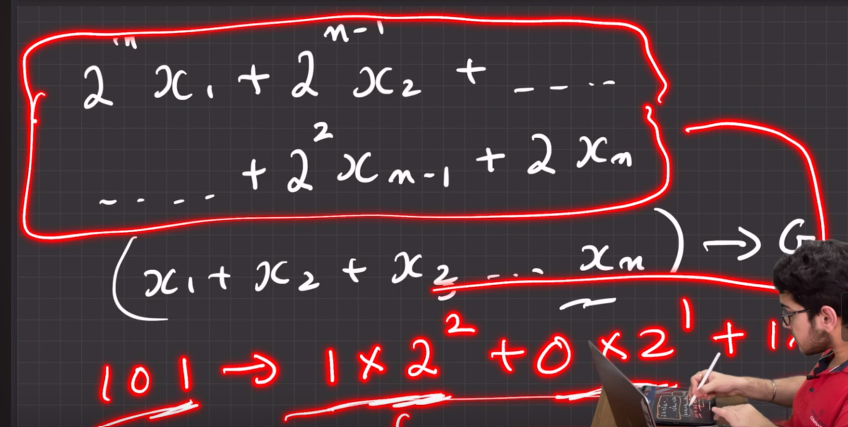 2ⁿ x₁ + 2ⁿ⁻¹ x₂ + ----
---- + 2² xₙ₋₁ + 2 xₙ
(x₁ + x₂ + x₃ --- xₙ) → G
101 → 1 × 2² + 0 × 2¹ + 1